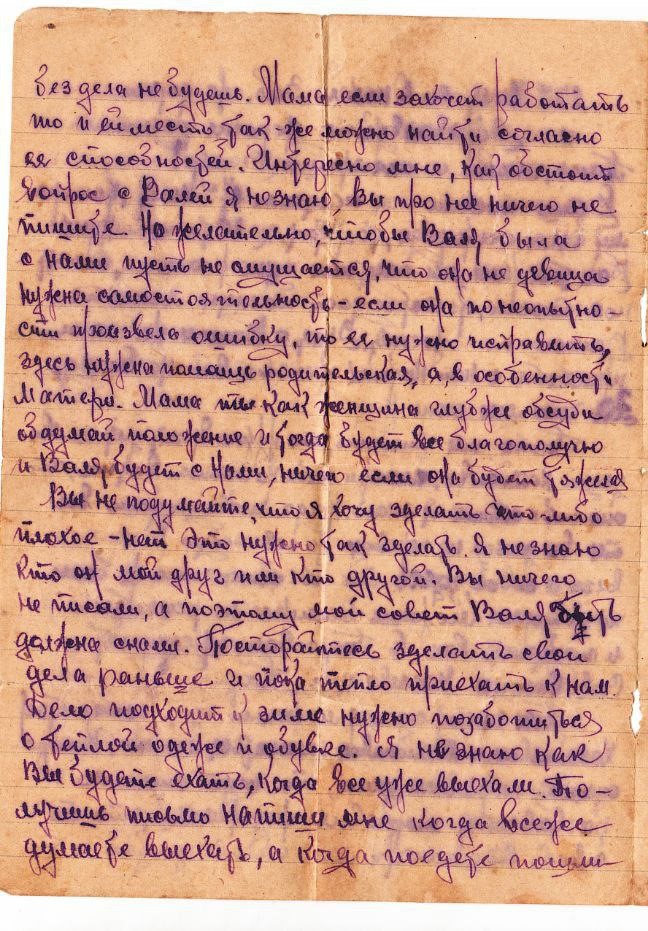 без дела не будешь. Мама если захочет работать
то и ей место так-же можно найти согласно
ее способностей. Интересно мне, как обстоит
вопрос с Валей я не знаю, Вы про нее ничего не
пишите. Но желательно, чтобы Валя была
с нами пусть не смущается, что она не девица
нужна самостоятельность - если она по неопытно-
сти произвела ошибку, то ее нужно исправить,
здесь нужна помощь родительская, а, в особенности
Матери. Мама ты как женщина глубже обсуди
обдумай положение и тогда будет все благополучно
и Валя, будет с нами, ничего если она будет тяжелая
Вы не подумайте, что я хочу зделать что-либо
плохое - нет это нужно так зделать. Я не знаю
кто он мой друг или кто другой. Вы ничего
не писали, а поэтому мой совет Валя быть
должна снами. Посторайтесь зделать свои
дела раньше и пока тепло приехать к нам.
Дело подходит к зиме нужно позаботиться
о теплой одеже и обувке. Я не знаю как
Вы будете ехать, когда все уже выехали. По-
лучишь письмо напиши мне когда всеже
думаете выехать, а когда поедете пошли